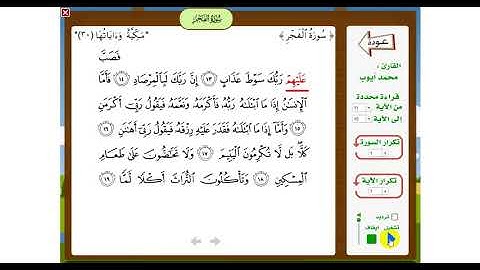 سُورَةُ الفَجْرِ
﴿ سُورَةُ الْفَجْرِ ﴾ "مَكِيَّةٌ وَءَايَاتُهَا (٣٠)"
فَصَبَّ
عَلَيْهِمْ رَبُّكَ سَوْطَ عَذَابٍ ١٣ إِنَّ رَبَّكَ لَبِالْمِرْصَادِ ١٤ فَأَمَّا
الْإِنسَٰنُ إِذَا مَا ابْتَلَىٰهُ رَبُّهُ فَأَكْرَمَهُ وَنَعَّمَهُ فَيَقُولُ رَبِّي أَكْرَمَنِ
١٥ وَأَمَّا إِذَا مَا ابْتَلَىٰهُ فَقَدَرَ عَلَيْهِ رِزْقَهُ فَيَقُولُ رَبِّي أَهَٰنَنِ ١٦
كَلَّا بَل لَا تُكْرِمُونَ الْيَتِيمَ ١٧ وَلَا تَحَٰضُّونَ عَلَىٰ طَعَامِ
الْمِسْكِينِ ١٨ وَتَأْكُلُونَ التُّرَاثَ أَكْلًا لَّمًّا ١٩
عودة
القارئ:
محمد أيوب
قراءة محددة
من الآية
إلى الآية
تكرار السورة
تكرار الآية
ترديد
تشغيل ايقاف